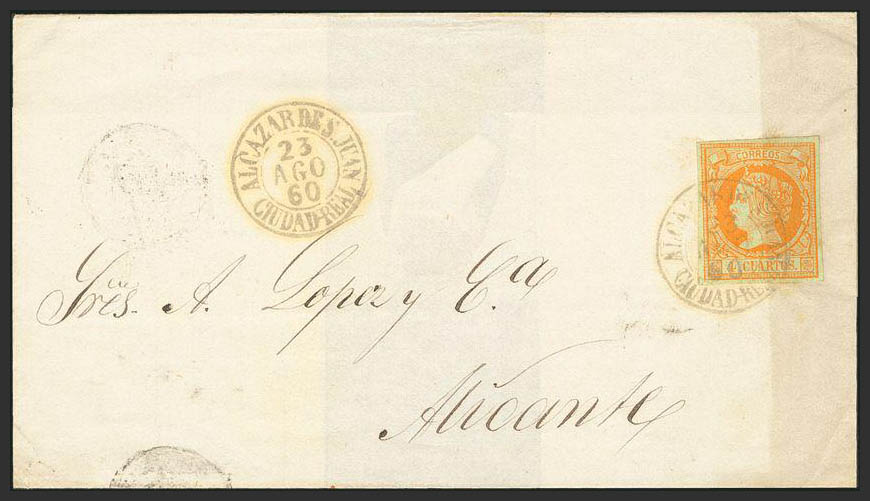 ALCAZAR DE S. JUAN
23
AGO
60
CIUDAD-REAL
CORREOS
4 CUARTOS.
ALCAZAR
CIUDAD-REAL
Sres. A. Lopez y Ca
Alicante